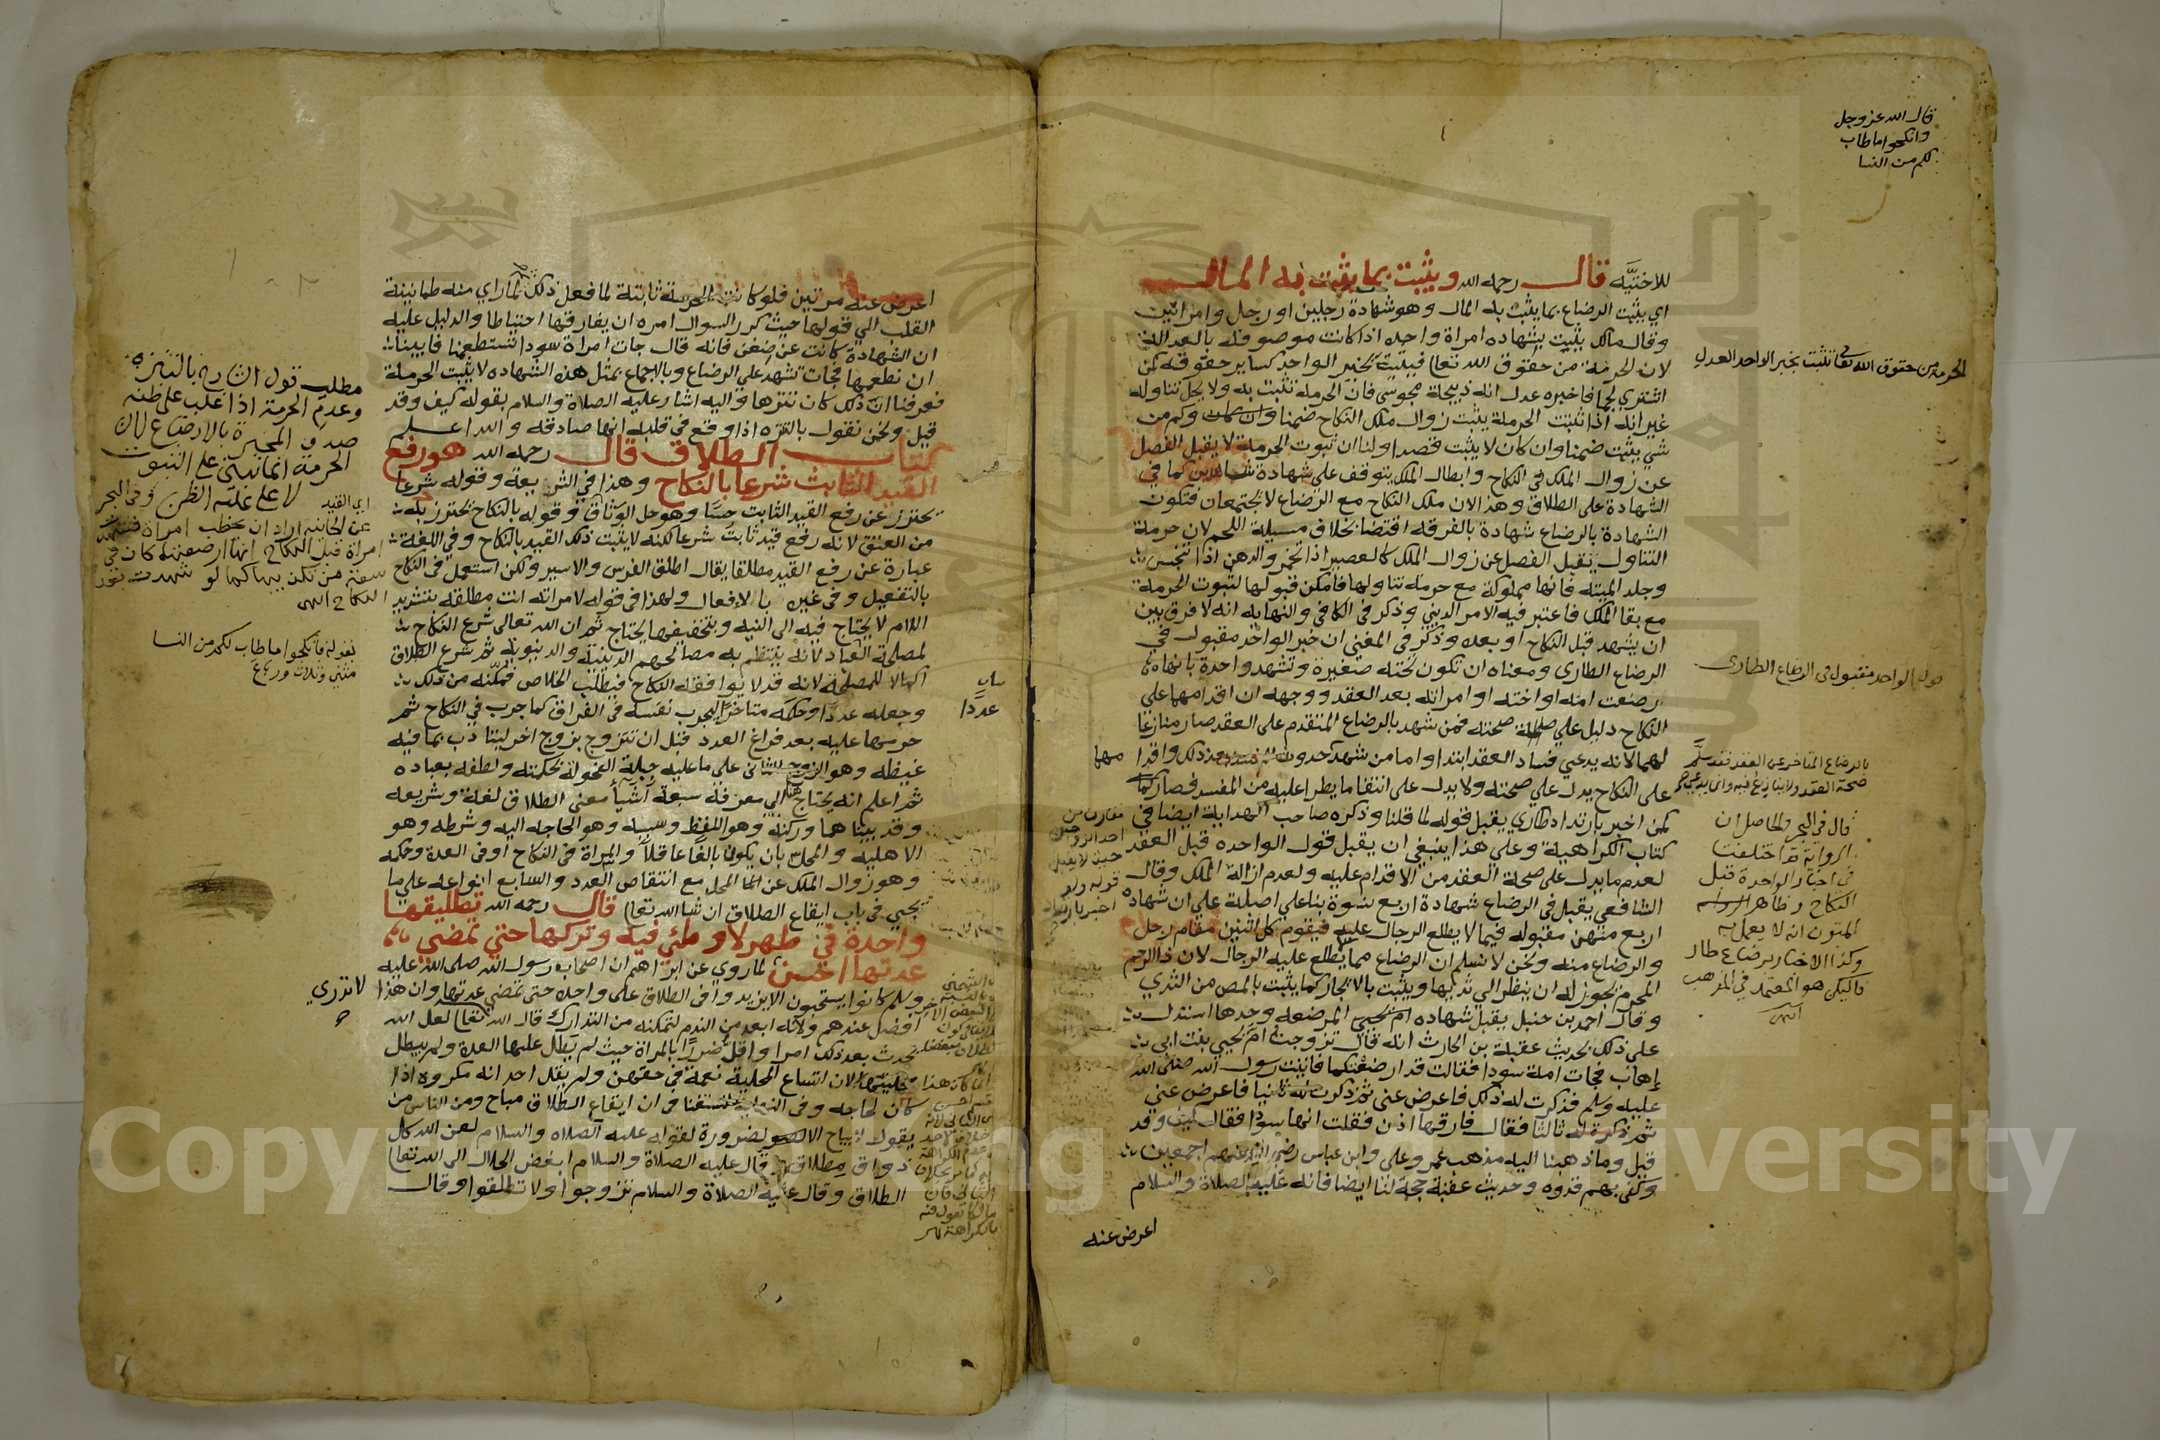 قال الله عز وجل
وانكحوا ما طاب
لكم من النسا
للاختيّه قال رحمه الله ويثبت بما يثبت به المال
اي يثبت الرضاع بما يثبت به المال وهو شهادة رجلين او رجل وامراتين
وقال مالك يثبت بشهاده امراة واحده اذا كانت موصوفة بالعدالة
لان الحرمة من حقوق الله تعا فيثبت بخبر الواحد كساير حقوقه كمن
اشتري لحما فاخبره عدل انه ذبيحة مجوسي فان الحرمة تثبت به ولا يحل تناوله
غير انه اذا ثبتت الحرمة يثبت زوال ملك النكاح ضمنا وكم من
شي يثبت ضمنا وان كان لا يثبت قصدا ولنا ان ثبوت الحرمة لا يقبل الفصل
عن زوال الملك في النكاح وابطال الملك يتوقف على شهادة شاهدين كما في
الشهادة على الطلاق وهذا لان ملك النكاح مع الرضاع لا يجتمعان فتكون
الشهادة بالرضاع شهادة بالفرقه اقتضا بخلاف مسيلة اللحم لان حرمة
التناول يقبل الفصل عن زوال الملك كالعصير اذا تخمر والدهن اذا تنجس
وجلد الميته فانها مملوكة مع حرمة تناولها فامكن قبولها لثبوت الحرمة
مع بقا الملك فاعتبر فيه الامر الديني وذكر في الكافي والنهايه انه لا فرق بين
ان يشهد قبل النكاح او بعده وذكر في المغني ان خبر الواحد مقبول في
الرضاع الطاري ومعناه ان تكون تحته صغيرة وتشهد واحدة بانها
ارضعت امه او اخته او امراته بعد العقد ووجهه ان اقدامهما على
النكاح دليل علي صحته فمن شهد بالرضاع المتقدم على العقد صار منازعا
لهما لانه يدعي فساد العقد ابتدا واما من شهد وقدا مهما
على النكاح يدل علي صحته ولا يدل على انتفا ما يطرا عليه من المفسد فصار كما
لمن اخبر بارتداد طاري يقبل قوله لما قلنا وذكره صاحب الهداية ايضا في
كتاب الكراهية وعلي هذا ينبغي ان يقبل قول الواحده قبل العقد
لعدم ما يدل على صحة العقد من الاقدام عليه ولعدم ازالة الملك وقال
الشافعي يقبل في الرضاع شهادة اربع نسوة بنا على اصله علي ان شهادة
اربع منهن مقبوله فيما لا يطلع الرجال عليه فيقوم كل اثنين مقام رجل
والرضاع منه ونحن لا نسلم ان الرضاع مما لا يطلع عليه الرجال لان ذا الرحم
المحرم يجوز له ان ينظر الي ثديها ويثبت بالايجار كما يثبت بالمص من الثدي
وقال احمد بن حنبل يقبل شهاده المرضعه وحدها استدل
على ذلك بحديث عقبة بن الحارث انه قال تزوجت ام يحيي بنت ابي
إهاب فجات امة سودا فقالت قد ارضعتكما فاتيت رسول الله صلى الله
عليه وسلم فذكرت له ذلك فاعرض عني ثم ذكرت له ثانيا فاعرض عني
ثم ذكرت له ثالثا فقال فارقها اذن فقلت انها سودا فقال كيف وقد
قيل وما ذهبنا اليه مذهب عمر وعلى وابن عباس رضي الله عنهم اجمعين
وكفى بهم قدوه وحديث عقبة حجة لنا ايضا فانه عليه الصلاة والسلام
اعرض عنه
الحرمة من حقوق الله تعا تثبت بخبر الواحد العدل
الواحد مقبول في الرضاع الطاري
بالرضاع المتاخر عن العقد فقد سلم
صحة العقد ولا ينازع فيه
قال في البحر والحاصل ان
الرواية قد اختلفت
في اخبار الواحدة قبل
النكاح وظاهر
المتون انه لا يعمل به
وكذا الاخبار برضاع طار
فليكن هو المعتمد في المذهب
اعرض عنه مرتين فلو كانت الحرمة ثابتة لما فعل ذلك ثم لما راي منه طمانينة
القلب الي قولها حيث كرر السوال امره ان يفارقها احتياطا والدليل عليه
ان الشهادة كانت عن ضغن فانه قال جات امراة سودا تستطعمنا فابينا
ان نطعمها فجات تشهد على الرضاع وبالاجماع بمثل هذه الشهاده لا يثبت الحرمة
فعرفنا ان ذلك كان تنزها واليه اشار عليه الصلاة والسلام بقوله كيف وقد
قيل ونحن نقول بالتنزه اذا وقع في قلبه انها صادقه والله اعلم
كتاب الطلاق قال رحمه الله هو رفع
القيد الثابت شرعا بالنكاح وهذا في الشريعة وقوله شرعا
يحترز عن رفع القيد الثابت حسّا وهو حل الوثاق وقوله بالنكاح يحترز به
من العتق لانه رفع قيد ثابت شرعا لكنه لا يثبت ذلك القيد بالنكاح وفي اللغة
عبارة عن رفع القيد مطلقا يقال اطلق الفرس والاسير ولكن استعمل في النكاح
بالتفعيل وفي غيره بالافعال ولهذا في قوله لامراته انت مطلقه بتشديد
اللام لا يحتاج فيه الى النيه وبتخفيفها يحتاج ثم ان الله تعالى شرع النكاح
لمصلحة العباد لانه ينتظم به مصالحهم الدينية والدنيوية ثم شرع الطلاق
اكمالا للمصلحة لانه قد لا يوافقه النكاح فيطلب الخلاص فمكّنه من ذلك
وجعله عددا وحكمه متاخرا ليجرب نفسه في الفراق كما جرب في النكاح ثم
حرمها عليه بعد فراغ العدد قبل ان تتزوج بزوج اخر ليتادب بما فيه
غيظه وهو الزوج الثاني على ما عليه جبلة الفحولة بحكمته ولطفه بعباده
ثم اعلم انه يحتاج هنا الي معرفة سبعة اشيا معنى الطلاق لغة وشريعه
وقد بيناهما وركنه وهو اللفظ وسببه وهو الحاجه اليه وشرطه وهو
الاهليه والمحل بان يكون بالغا عاقلا والمراة في النكاح او في العدة وحكمه
وهو زوال الملك عن المحل مع انتقاص العدد والسابع انواعه علي ما
نجي في باب ايقاع الطلاق ان شا الله تعا قال رحمه الله تطليقها
واحدة في طهر لا وطئ فيه وتركها حتي تمضي
عدتها احسن لما روي عن ابراهيم ان اصحاب رسول الله صلى الله عليه
وسلم كانوا يستحبون الا يزيدوا في الطلاق على واحدة حتى تمضي عدتها وان هذا
افضل عندهم ولانه ابعد من الندم لتمكنه من التدارك قال الله تعا لعل الله
يحدث بعد ذلك امرا واقل ضررا بالمراة حيث لم يطل عليها العدة ولم يبطل
محليتها لان اتساع المحلية نعمة في حقهن ولم يقل احد انه مكروه اذا
كان لحاجه وفي ان ايقاع الطلاق مباح ومن الناس من
يقول لا يباح الا لضرورة لقوله عليه الصلاه والسلام لعن الله كل
ذواق مطلاق وقال عليه الصلاة والسلام ابغض الحلال الى الله تعا
الطلاق وقال عليه الصلاة والسلام تزوجوا ولا تطلقوا وقال
مطلب قول
وعدم الحرمة اذا غلب على ظنه
صدق المخبرة بالارضاع لان
الحرمة انما تبتنى علي الثبوت
لا على غلبة الظن وفي البحر
اي القيد
عن الخانيه اراد ان يخطب امراة فشهدت
امراة قبل النكاح انها ارضعتهما كان في
سعة من تكذيبها كما لو شهدت بعد
النكاح
بقوله فانكحوا ما طاب لكم من النسا
مثنى وثلاث ورباع
لا تدري
عددا
Copyright © King Saud University